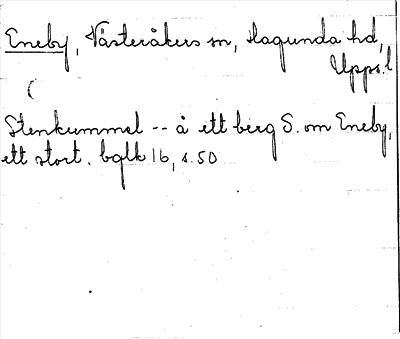 Eneby, Västeråkers sn, Hagunda hd,
Upps. l
(
Stenkummel -- å ett berg S. om Eneby,
ett stort. bglk 16, s. 50